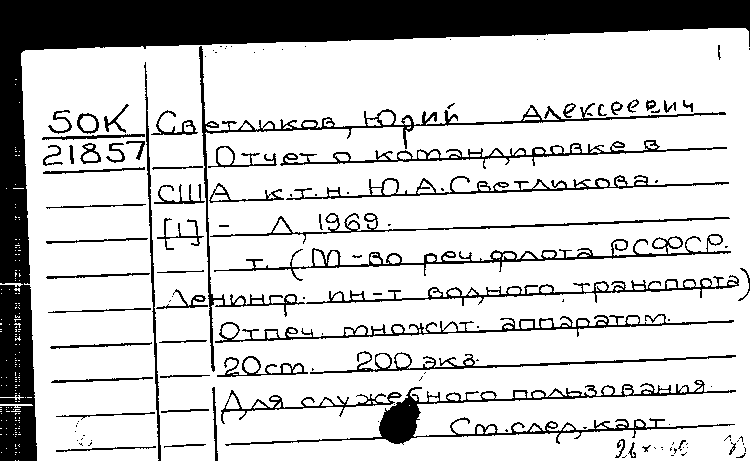 1
50К Светликов, Юрий Алексеевич
21857 Отчет о командировке в
США к.т.н. Ю.А.Светликова.
[1] - Л, 1969.
т. (М-во реч. флота РСФСР.
Ленингр. ин-т водного транспорта)
Отпеч. множит. аппаратом.
20 ст. 200 экз.
Для служебного пользования.
См. след. карт.